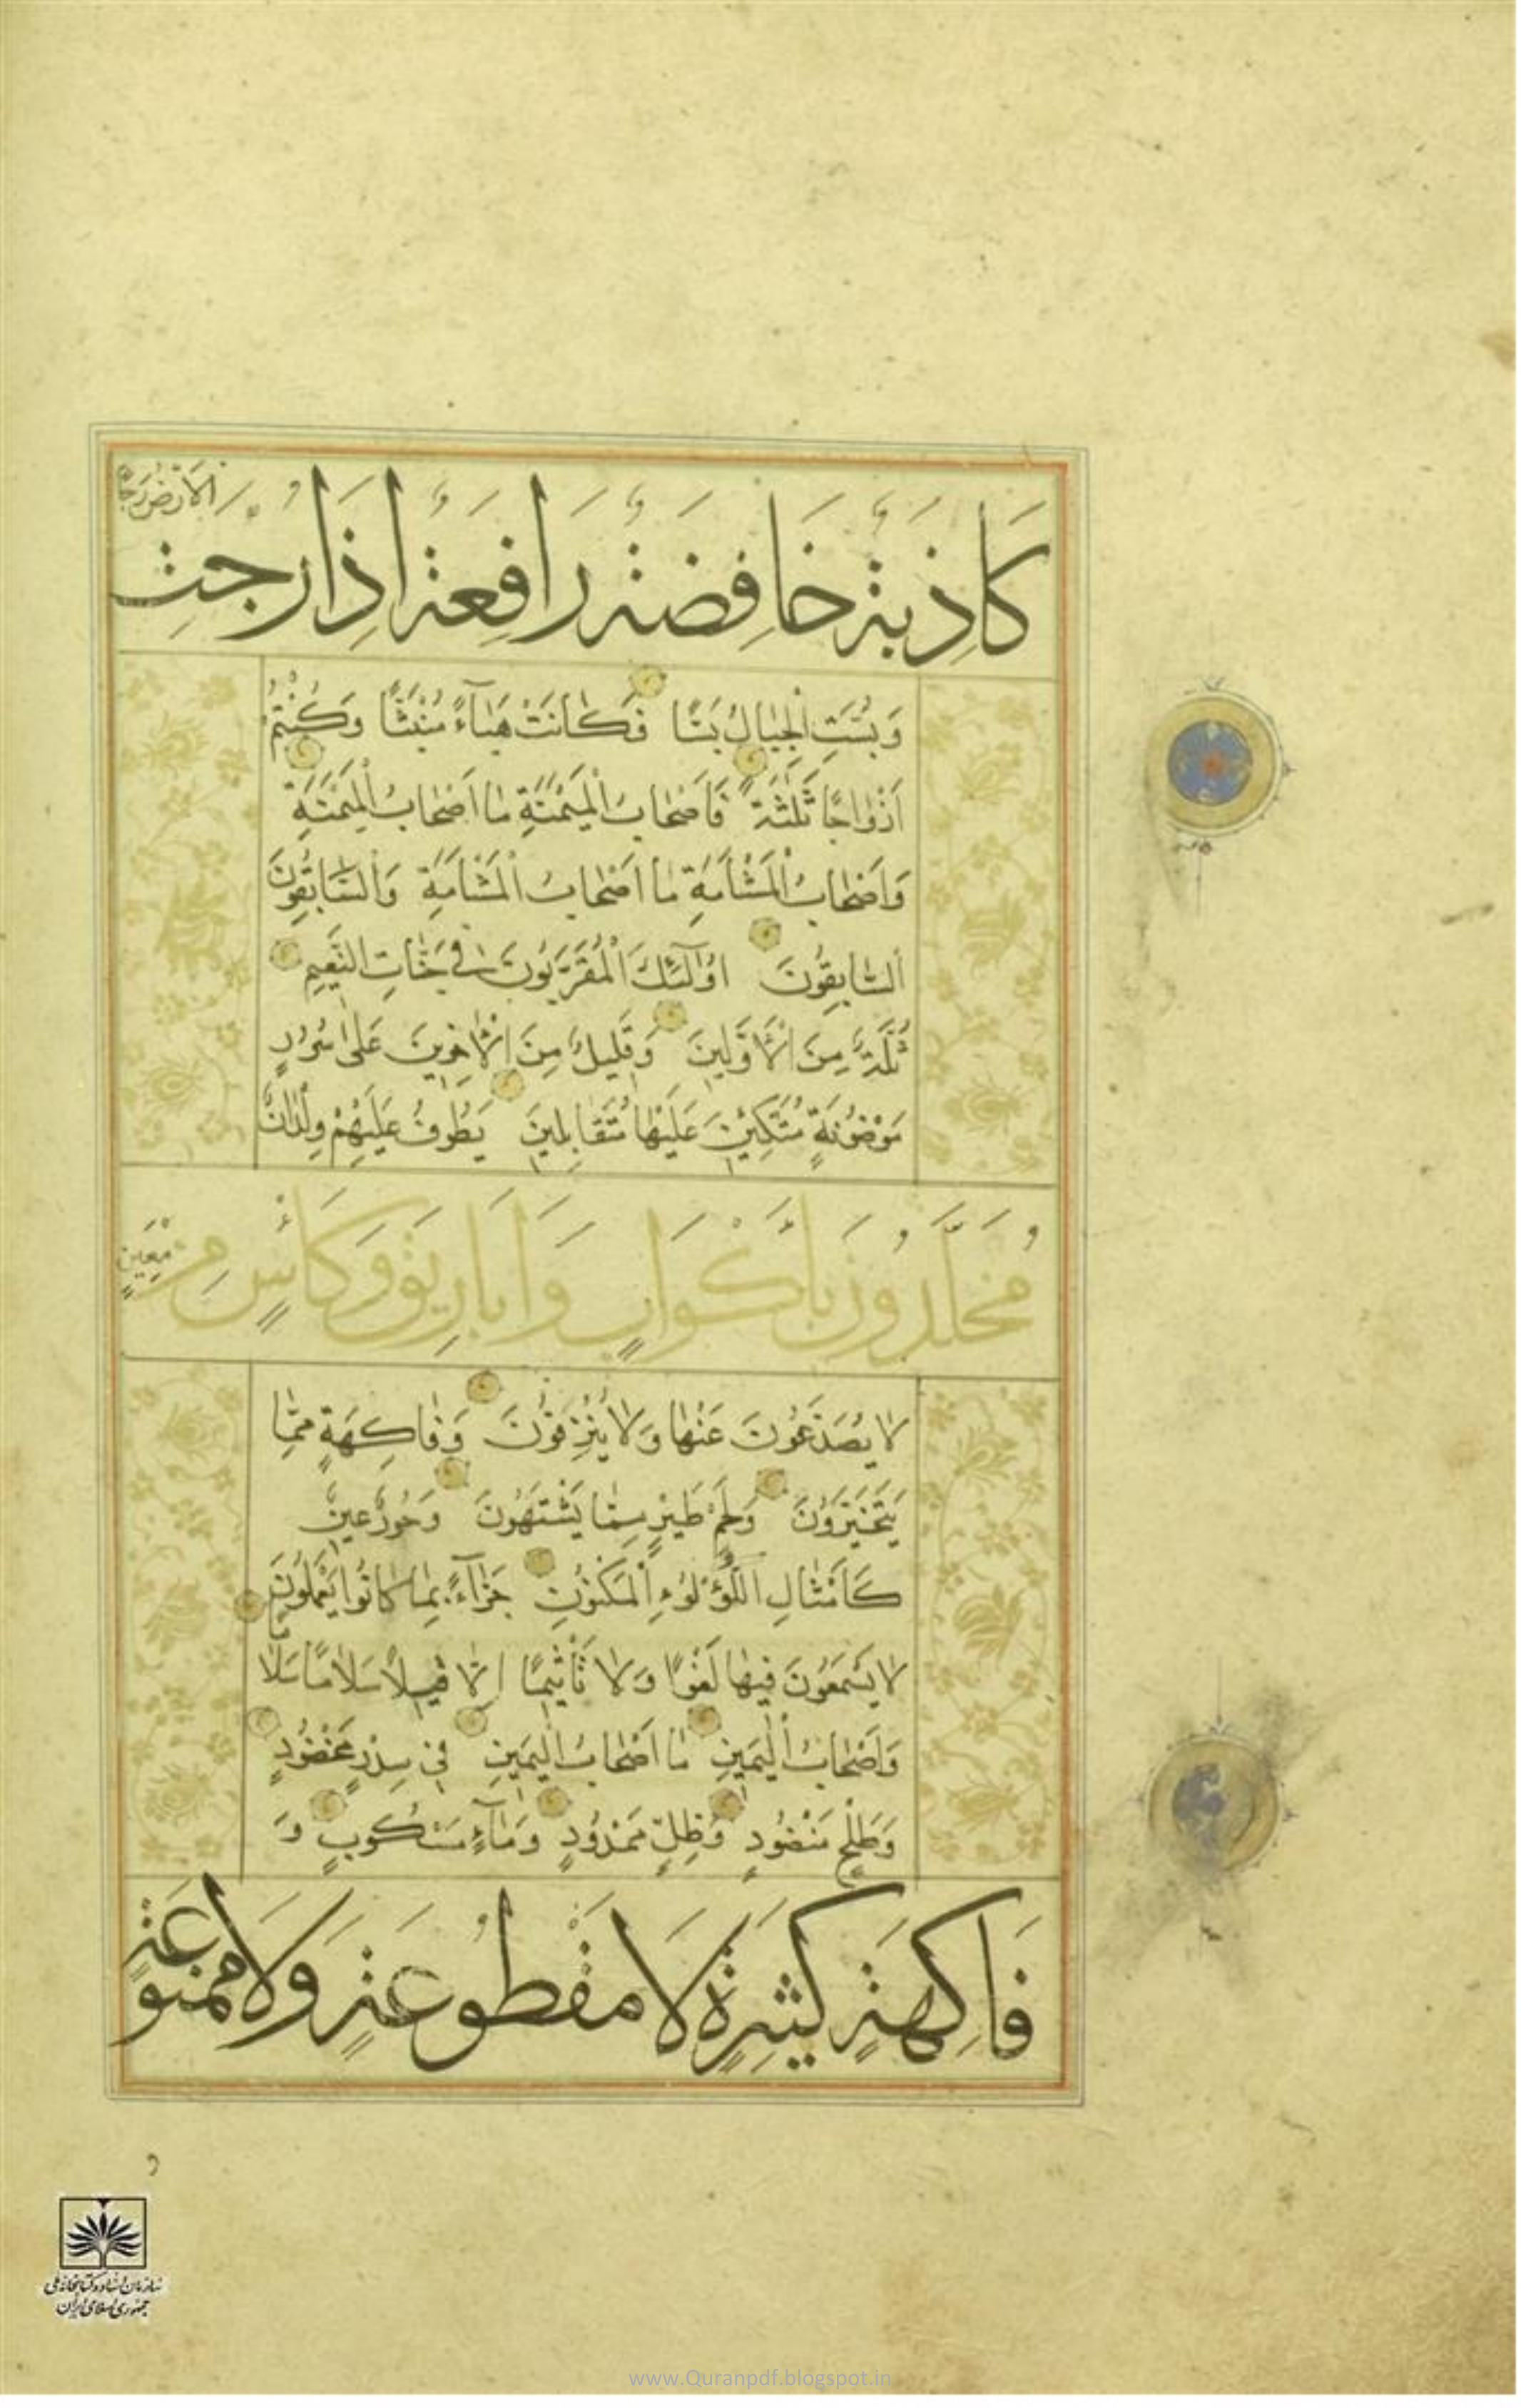 كَاذِبَةٌ خَافِضَةٌ رَافِعَةٌ اِذَا رُجَّتِ الْاَرْضُ رَجًّا
وَبُسَّتِ الْجِبَالُ بَسًّا فَكَانَتْ هَبَآءً مُنْبَثًّا وَكُنْتُمْ
اَزْوَاجًا ثَلٰثَةً فَاَصْحَابُ الْمَيْمَنَةِ مَا اَصْحَابُ الْمَيْمَنَةِ
وَاَصْحَابُ الْمَشْاَمَةِ مَا اَصْحَابُ الْمَشْاَمَةِ وَالسَّابِقُونَ
السَّابِقُونَ اُولٰٓئِكَ الْمُقَرَّبُونَ فِي جَنَّاتِ النَّعِيمِ
ثُلَّةٌ مِنَ الْاَوَّلِينَ وَقَلِيلٌ مِنَ الْاٰخِرِينَ عَلٰى سُرُرٍ
مَوْضُونَةٍ مُتَّكِئِينَ عَلَيْهَا مُتَقَابِلِينَ يَطُوفُ عَلَيْهِمْ وِلْدَانٌ
مُخَلَّدُونَ بِاَكْوَابٍ وَاَبَارِيقَ وَكَأْسٍ مِنْ مَعِينٍ
لَا يُصَدَّعُونَ عَنْهَا وَلَا يُنْزِفُونَ وَفَاكِهَةٍ مِمَّا
يَتَخَيَّرُونَ وَلَحْمِ طَيْرٍ مِمَّا يَشْتَهُونَ وَحُورٌ عِينٌ
كَاَمْثَالِ اللُّؤْلُؤِ الْمَكْنُونِ جَزَآءً بِمَا كَانُوا يَعْمَلُونَ
لَا يَسْمَعُونَ فِيهَا لَغْوًا وَلَا تَأْثِيمًا اِلَّا قِيلًا سَلَامًا سَلَامًا
وَاَصْحَابُ الْيَمِينِ مَا اَصْحَابُ الْيَمِينِ فِي سِدْرٍ مَخْضُودٍ
وَطَلْحٍ مَنْضُودٍ وَظِلٍّ مَمْدُودٍ وَمَآءٍ مَسْكُوبٍ وَ
فَاكِهَةٍ كَثِيرَةٍ لَا مَقْطُوعَةٍ وَلَا مَمْنُوعَةٍ
سازمان اسناد و کتابخانه ملی
جمهوری اسلامی ایران
www.Quranpdf.blogspot.in